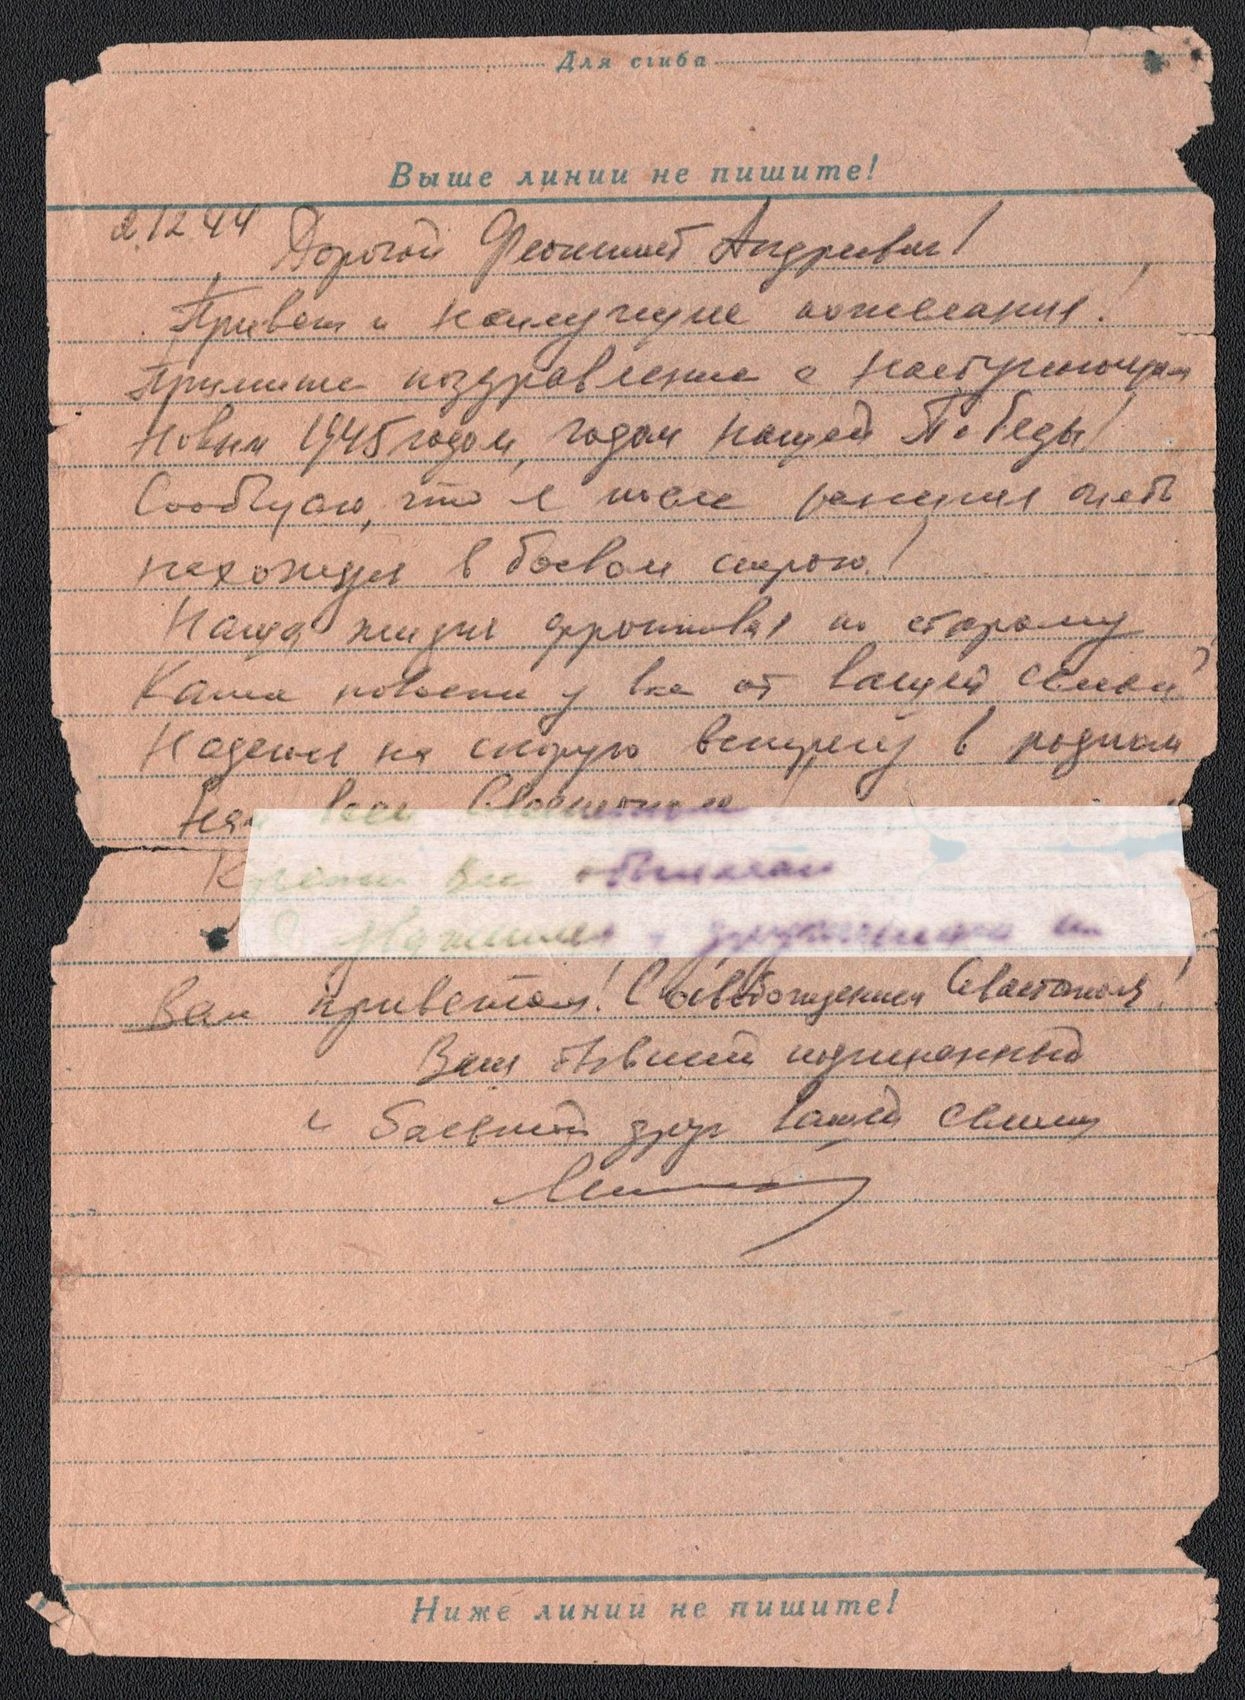 Для сгиба
Выше линии не пишите!
2.12.44 Дорогой Феоктист Андреевич!
Привет и наилучшие пожелания!
Примите поздравление с наступающим
Новым 1945 годом, годом нашей Победы!
Сообщаю, что я после ранения опять
нахожусь в боевом строю!
Наша жизнь фронтовая по старому
Какие новости у вас от вашей семьи?
Надеюсь на скорую встречу в родном
Нам всем Севастополе
Крепко Вас обнимаю
С уважением и дружеским к
Вам приветом! С освобождением Севастополя!
Ваш бывший подчиненный
и боевой друг вашей семьи
Ниже линии не пишите!